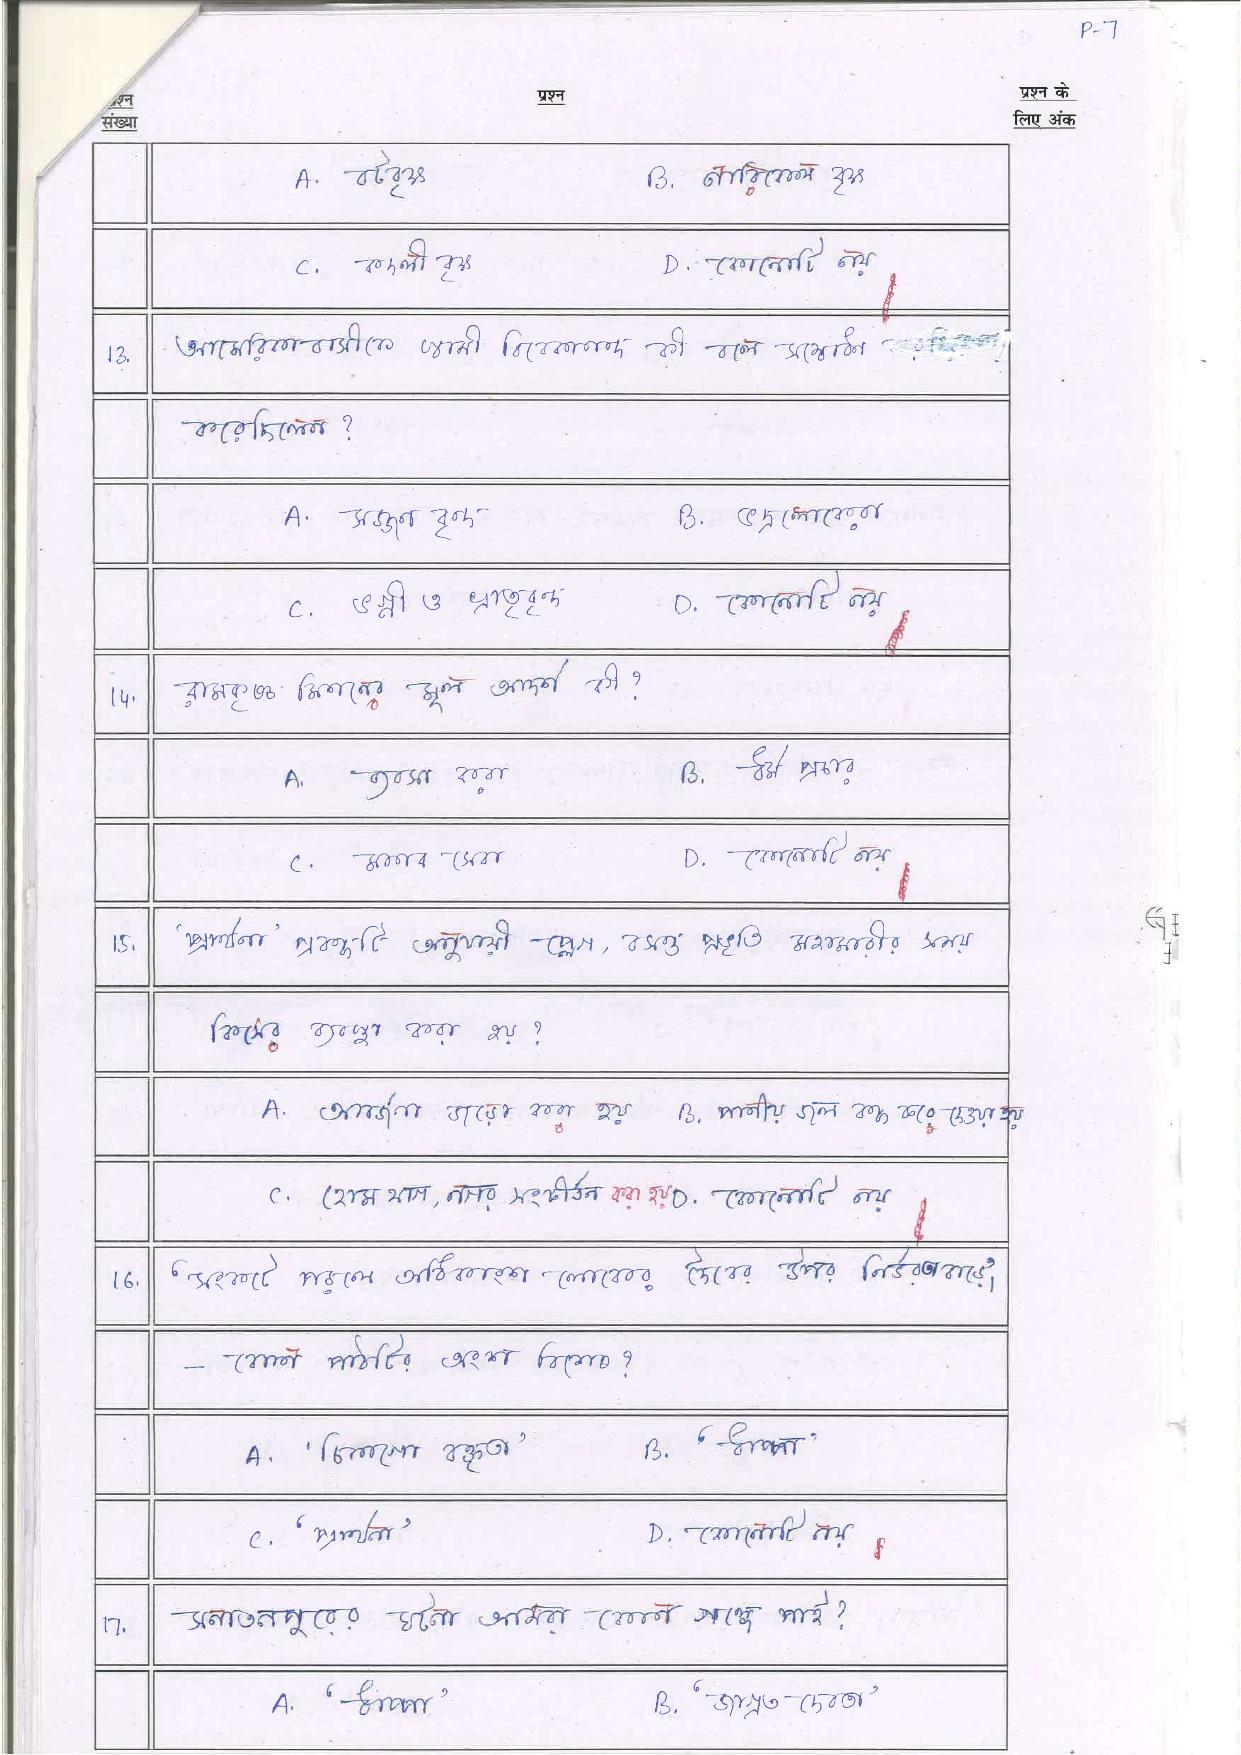 P-7
प्रश्न संख्या
प्रश्न
प्रश्न के लिए अंक
A. বটবৃক্ষ B. নারিকেল বৃক্ষ
C. কদলী বৃক্ষ D. কোনোটি নয়
13. আমেরিকাবাসীকে স্বামী বিবেকানন্দ কী বলে সম্বোধন
করেছিলেন?
A. সজ্জন বৃন্দ B. ভদ্রলোকেরা
C. ভগ্নী ও ভ্রাতৃবৃন্দ D. কোনোটি নয়
14. রামকৃষ্ণ মিশনের মূল আদর্শ কী?
A. ব্যবসা করা B. ধর্ম প্রচার
C. মানব সেবা D. কোনোটি নয়
15. 'প্রার্থনা' প্রবন্ধটি অনুযায়ী প্লেগ, বসন্ত প্রভৃতি মহামারীর সময়
কিসের ব্যবস্থা করা হয়?
A. আবর্জনা জড়ো করা হয় B. পানীয় জল বন্ধ করে দেওয়া হয়
C. হোম যাগ, নগর সংকীর্তন করা হয় D. কোনোটি নয়
16. 'সংকটে পড়লে অধিকাংশ লোকের দৈবের উপর নির্ভরতা বাড়ে',
— কোন পাঠটির অংশ বিশেষ?
A. 'চিকাগো বক্তৃতা' B. 'ধাপ্পা'
C. 'প্রার্থনা' D. কোনোটি নয়
17. সনাতনপুরের ঘটনা আমরা কোন গল্পে পাই?
A. 'ধাপ্পা' B. 'জাগ্রত দেবতা'